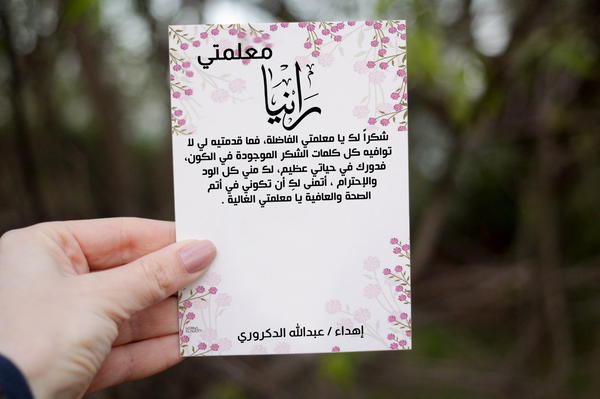 معلمتي
رانيا
شكراً لك يا معلمتي الفاضلة، فما قدمتيه لي لا
توافيه كل كلمات الشكر الموجودة في الكون،
فدورك في حياتي عظيم، لك مني كل الود
والإحترام ، أتمنى لكِ أن تكوني في أتم
الصحة والعافية يا معلمتي الغالية .
إهداء / عبدالله الدكروري